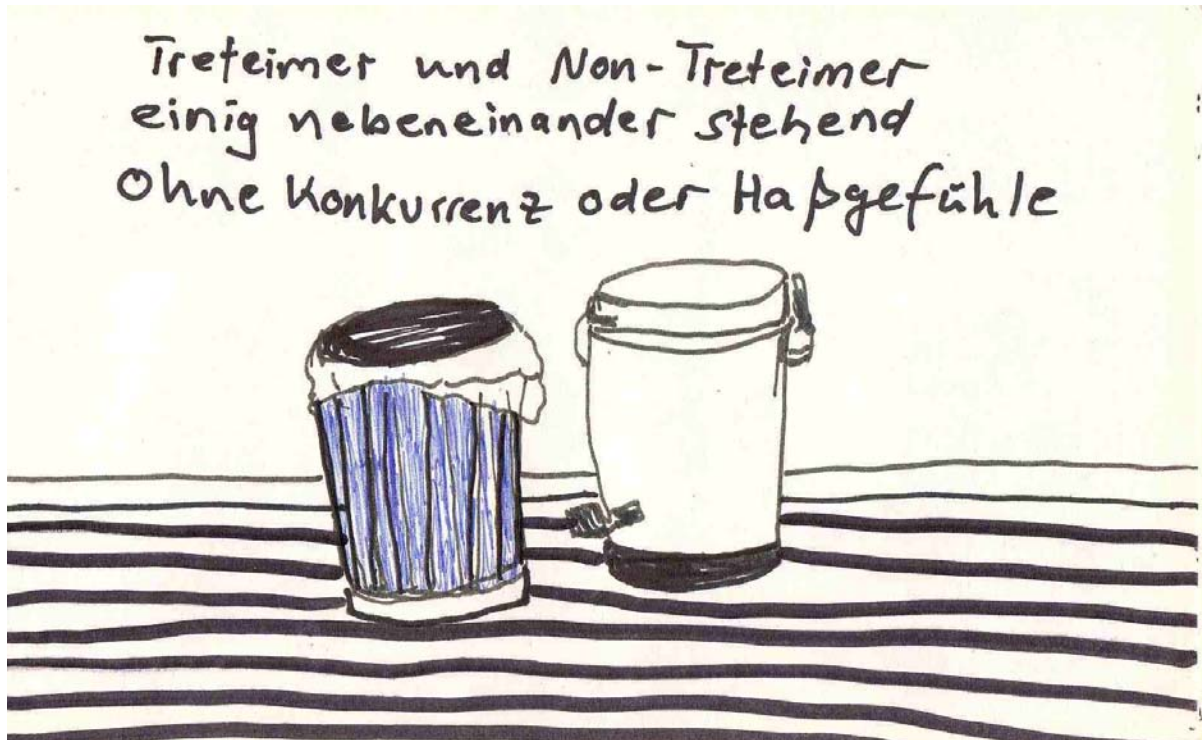 Treteimer und Non-Treteimer
einig nebeneinander stehend
Ohne Konkurrenz oder Haßgefühle